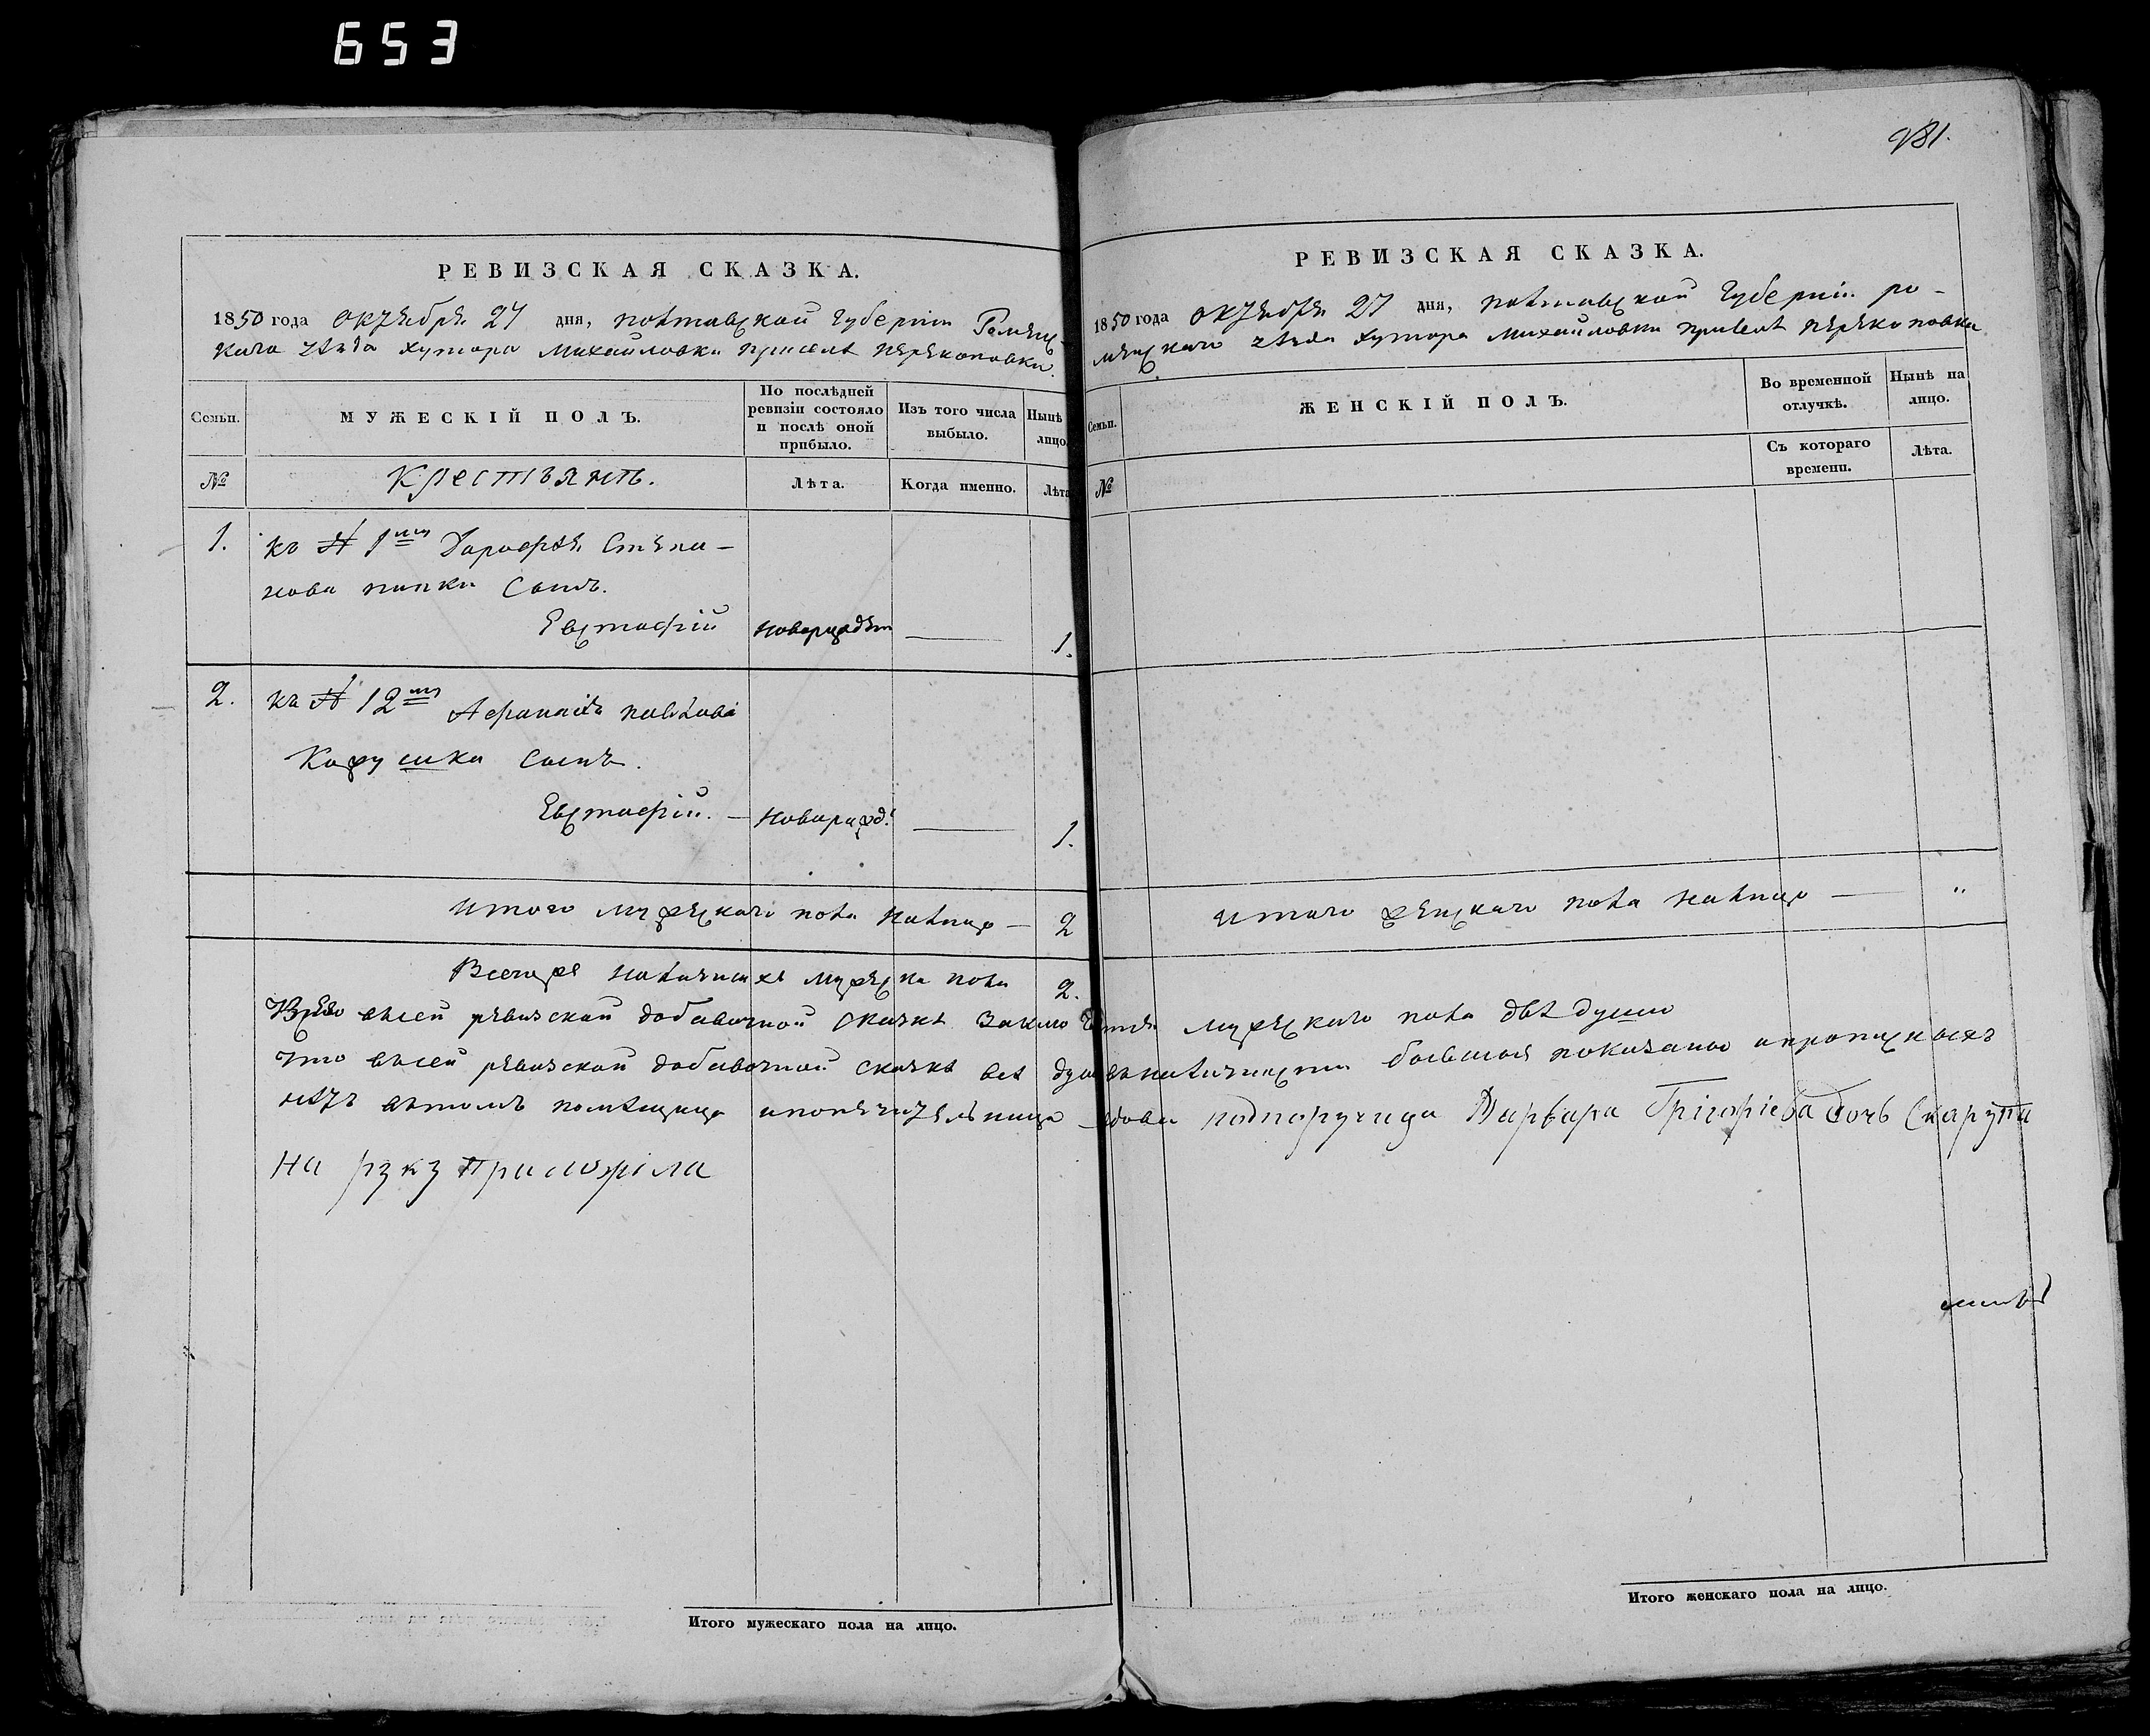 653
981.
РЕВИЗСКАЯ СКАЗКА.
1850 года октября 27 дня, полтавской губернии Роменс
каго уезда хутора Михайловки при селе перекоповки.
Семьи.
МУЖЕСКІЙ ПОЛЪ.
По послѣдней ревизіи состояло и послѣ оной прибыло.
Изъ того числа выбыло.
Нынѣ лицо
№
Крестьянъ.
Лѣта.
Когда именно.
Лѣта
1. къ № 1му Дорофея Степа-
нова сынъ.
Евстафій новорожден 1.
2. къ № 12му Афанасія павлова
сынъ.
Евстафій. — новорожд. 1.
Итого мужескаго пола налицо — 2
Всего же наличныхъ мужеска пола 2.
Итого мужескаго пола на лицо.
РЕВИЗСКАЯ СКАЗКА.
1850 года октября 27 дня, полтавской губерніи ро-
менскаго уезда хутора Михайловки при селе перекоповки
Семьи.
ЖЕНСКІЙ ПОЛЪ.
Во временной отлучкѣ.
Нынѣ на лицо.
№
Съ котораго времени.
Лѣта.
итого женскаго пола налицо — "
въсей ревизской добавочной сказке мужескаго пола две души
что въсей ревизской добавочной сказке все души въналичности показаны ипропускныхъ
нетъ вътомъ помещица ипопечительница вдова подпоручица Варвара Грігоріева дочь Скарупи
на руку приложіла
Итого женскаго пола на лицо.